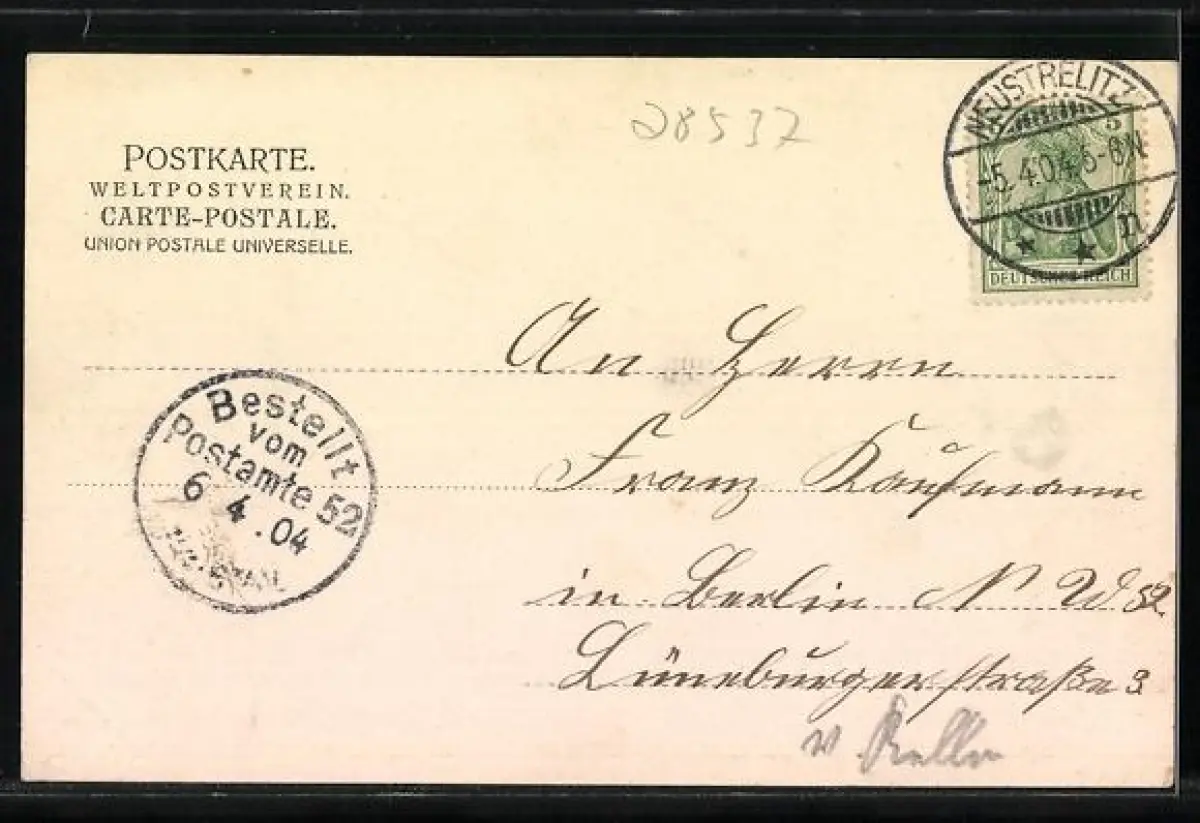 28537
POSTKARTE.
WELTPOSTVEREIN.
CARTE-POSTALE.
UNION POSTALE UNIVERSELLE.
NEUSTRELITZ
-5.4.04.5-6N
n
5
DEUTSCHES REICH
An Herrn
Franz Kaufmann
in Berlin N W 52.
Lüneburgerstraße 3
Bestellt
vom
Postamte 52
6 4 .04
v.